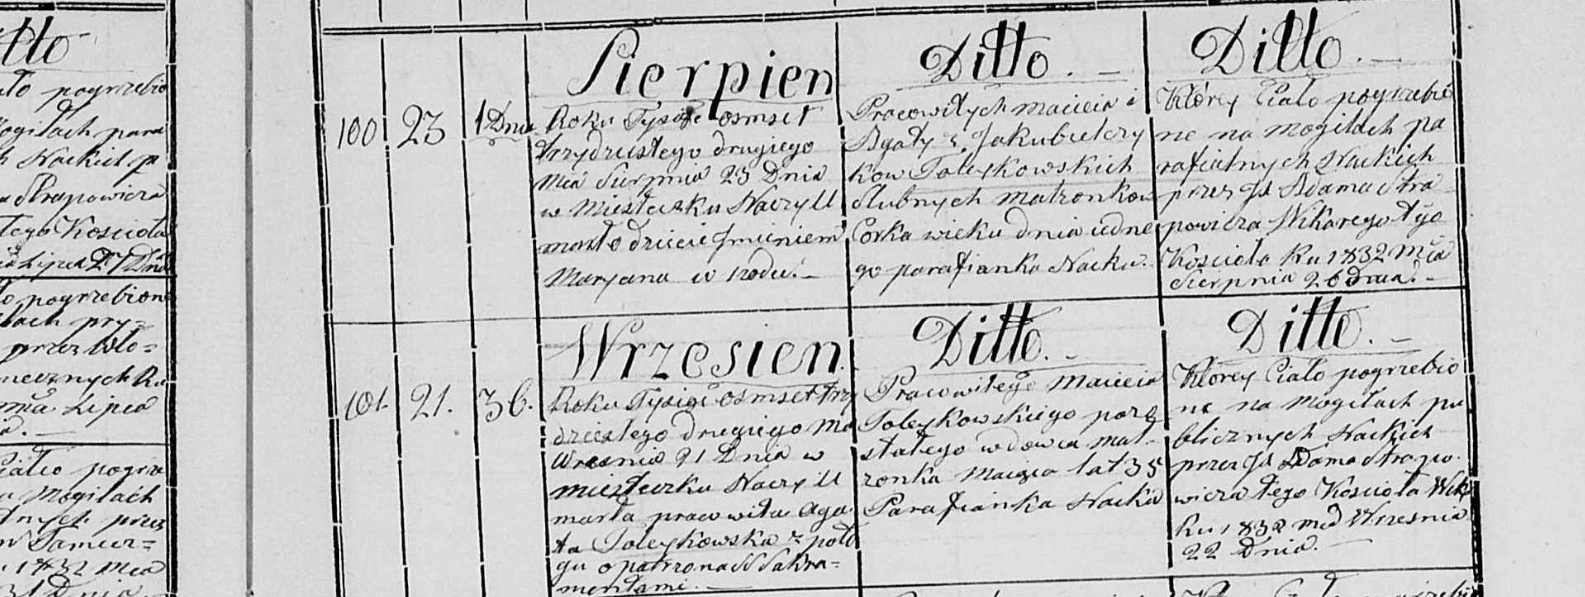 tto
ało pogrzebio
ogiłach para
h Nackich p
a Strapowicza
tego Kościoła
ia Lipca 27 Dnia
o pogrzebione
łach pry-
przez Wło=
mecznych Ru
mca Lipca
a.
Ciało pogrze
a Mogiłach
lnych przez
1832 Mca
31 Dnia
Sierpien
100 23 1 Dnia
Roku Tysiąc osmset
trzydziestego drugiego
Mca Sierpnia 23 Dnia
w Miasteczku Naczy U
marło dziecię Jmieniem
Maryana w rodu.
Ditto. -
Pracowitych Macieia i
Agaty z Jakubielczy
kow Toleykowskich
Slubnych Małżonkow
Corka wieku dnia iedne
go parafianka Nacka.
Ditto. -
Którey Ciało pogrzebio
ne na Mogiłach pa
rafialnych Nackich
przez Jd Adama Stra
powicza Wikarego tego
Kościoła Ru 1832 Mca
Sierpnia 26 Dnia. -
Wrzesien.
101. 21. 36.
Roku Tysiąc osmset trzy
dziestego drugiego Mca
Wresnia 21 Dnia w
Miasteczku Naczy U
marła pracowita Aga
ta Toleykowska z poło
gu opatrzona SS Sakra=
mentami.
Ditto. -
Pracowitego Macieia
Toleykowskiego pozo
stałego wdowca mał-
żonka maiąca lat 35
Parafianka Nacka
Ditto. -
Którey Ciało pogrzebio
ne na Mogiłach pu
blicznych Nackich
przez Jd Adama Strapo-
wicza tego Kościoła Wik
Ru 1832 mca Wresnia
22 Dnia.